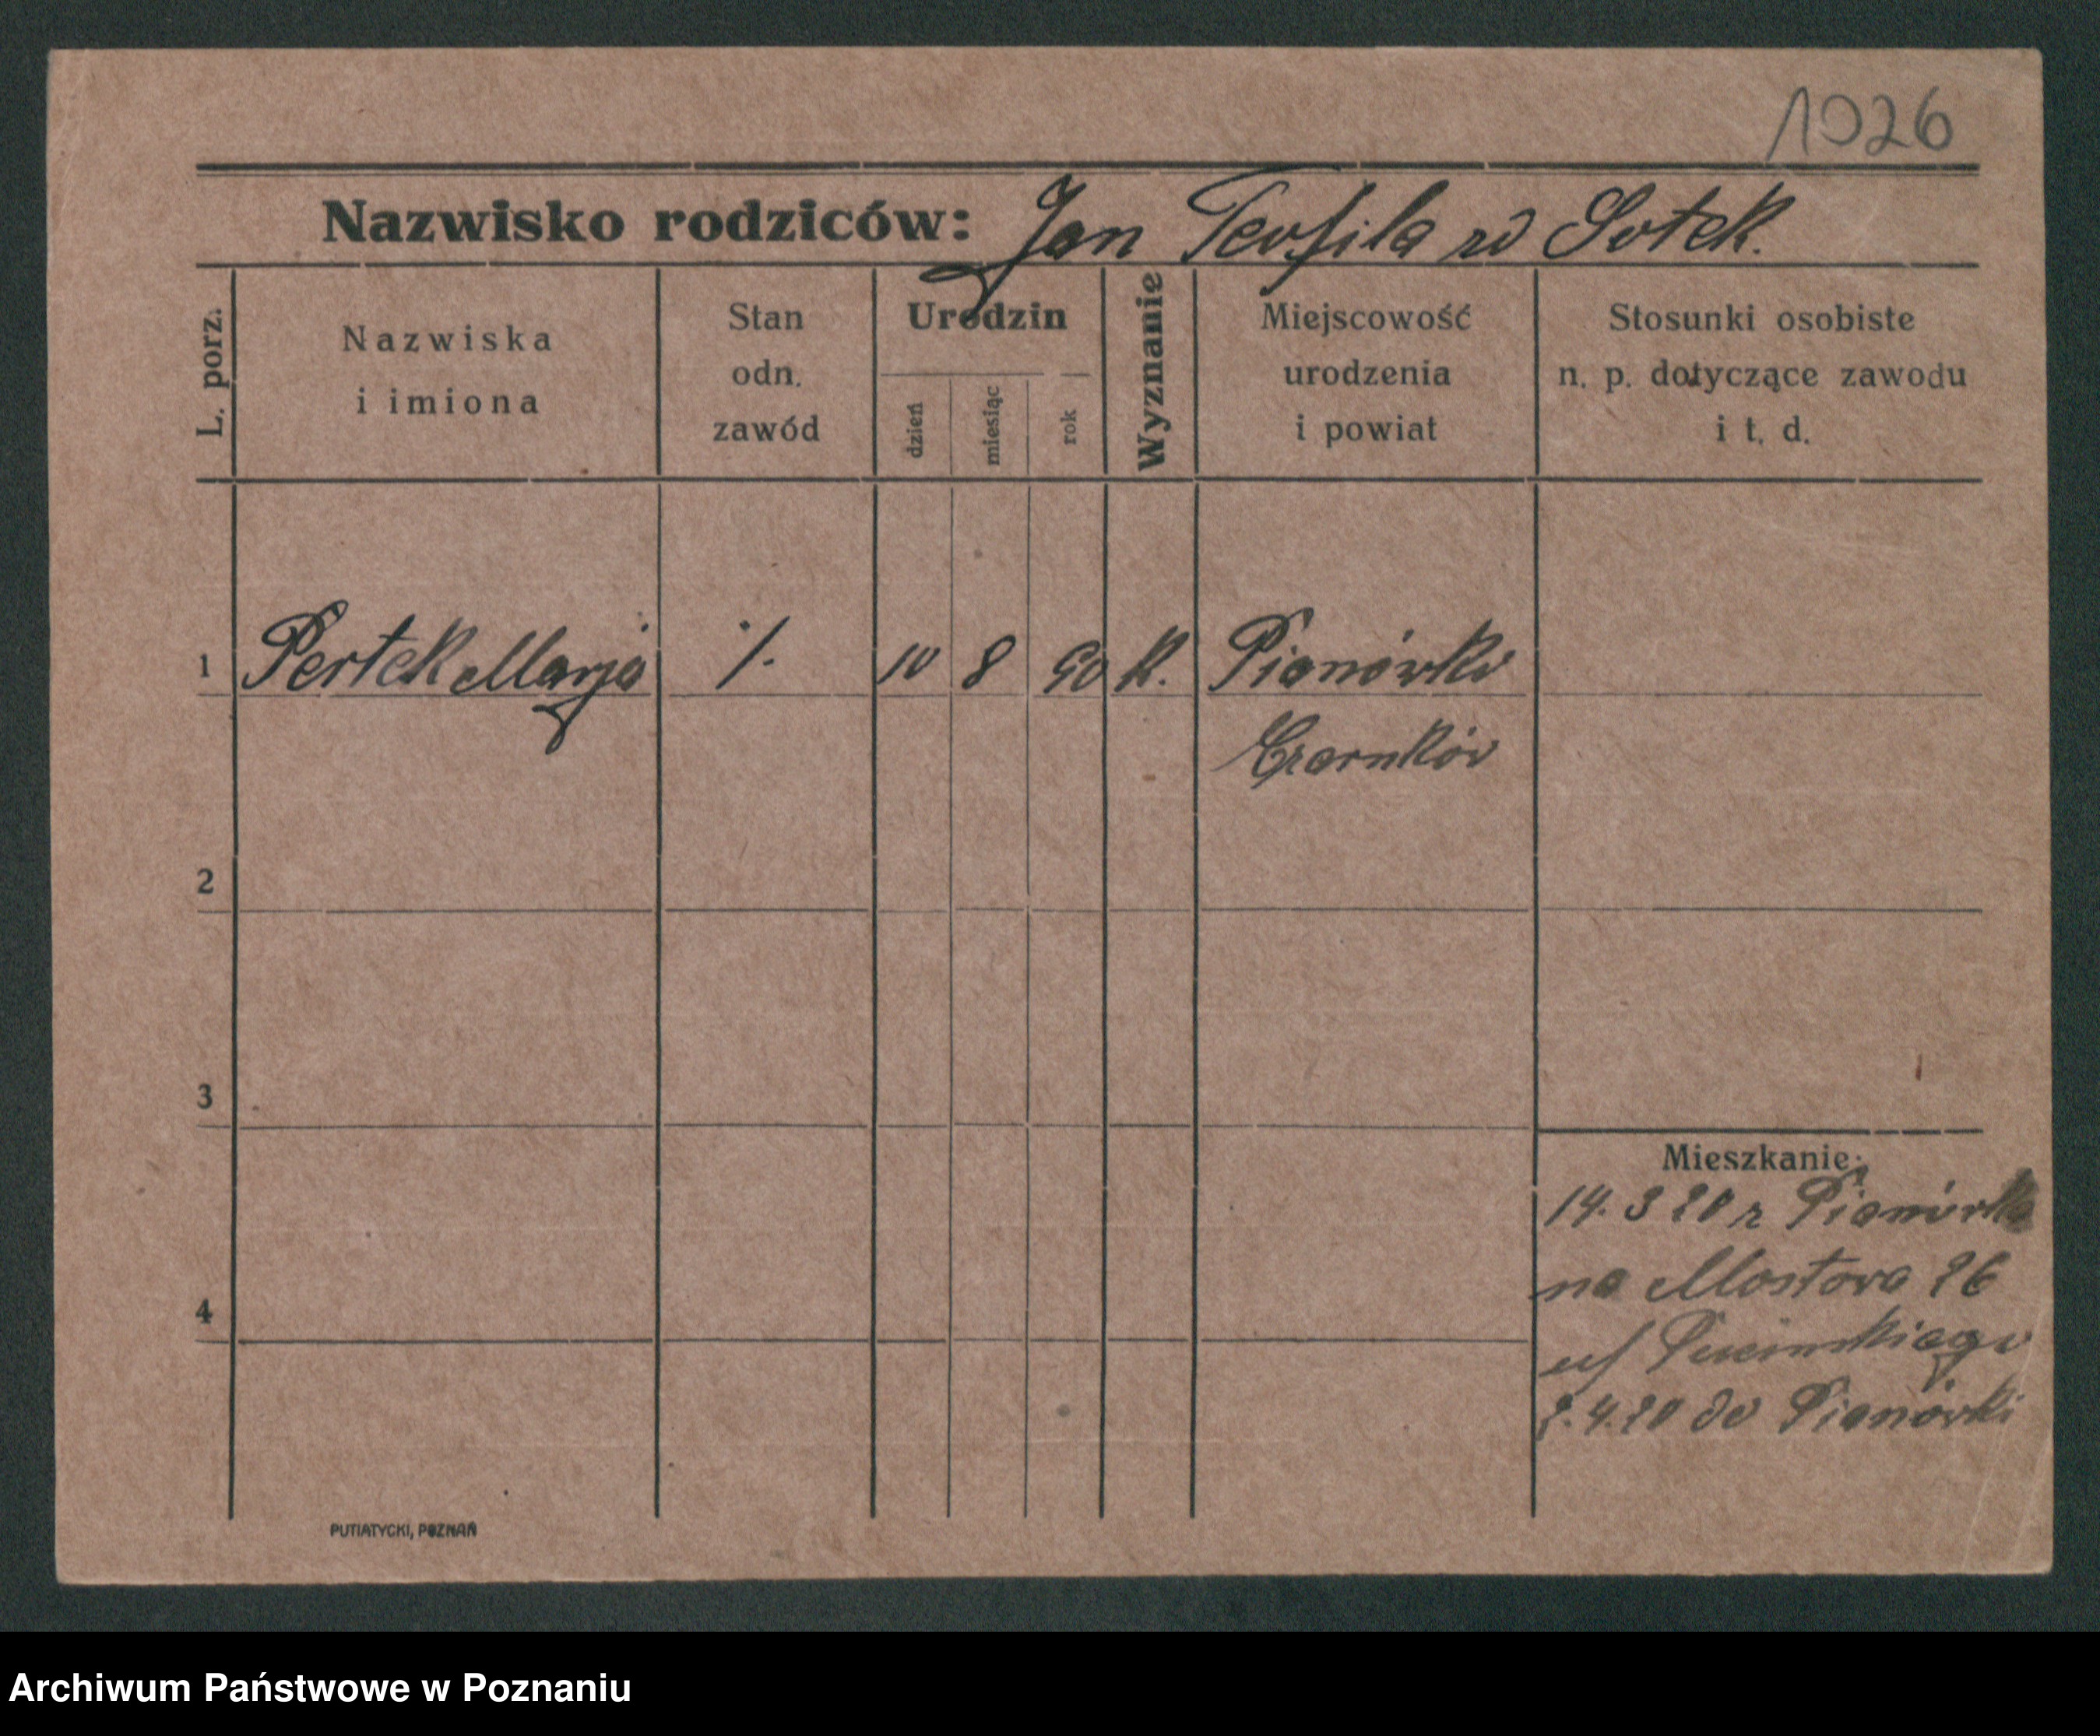 1026
Nazwisko rodziców: Jan Teofila rd Sotek.
L. porz.
Nazwiska
i imiona
Stan
odn.
zawód
Urodzin
dzień
miesiąc
rok
Wyznanie
Miejscowość
urodzenia
i powiat
Stosunki osobiste
n. p. dotyczące zawodu
i t. d.
1 Pertek Marja /. 10 8 90 K. Pianówko
Czarnków
2
3
4
Mieszkanie:
14. 3 20 z Pianówki
na Mostowa 26
u/
2. 4. 20 do Pianówki
PUTIATYCKI, POZNAŃ
Archiwum Państwowe w Poznaniu